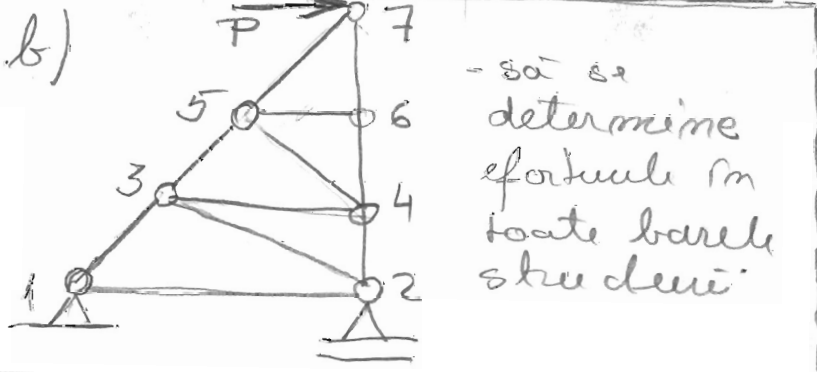 b)
P
7
5
6
3
4
1
2
- să se
determine
eforturile în
toate barele
structurii.